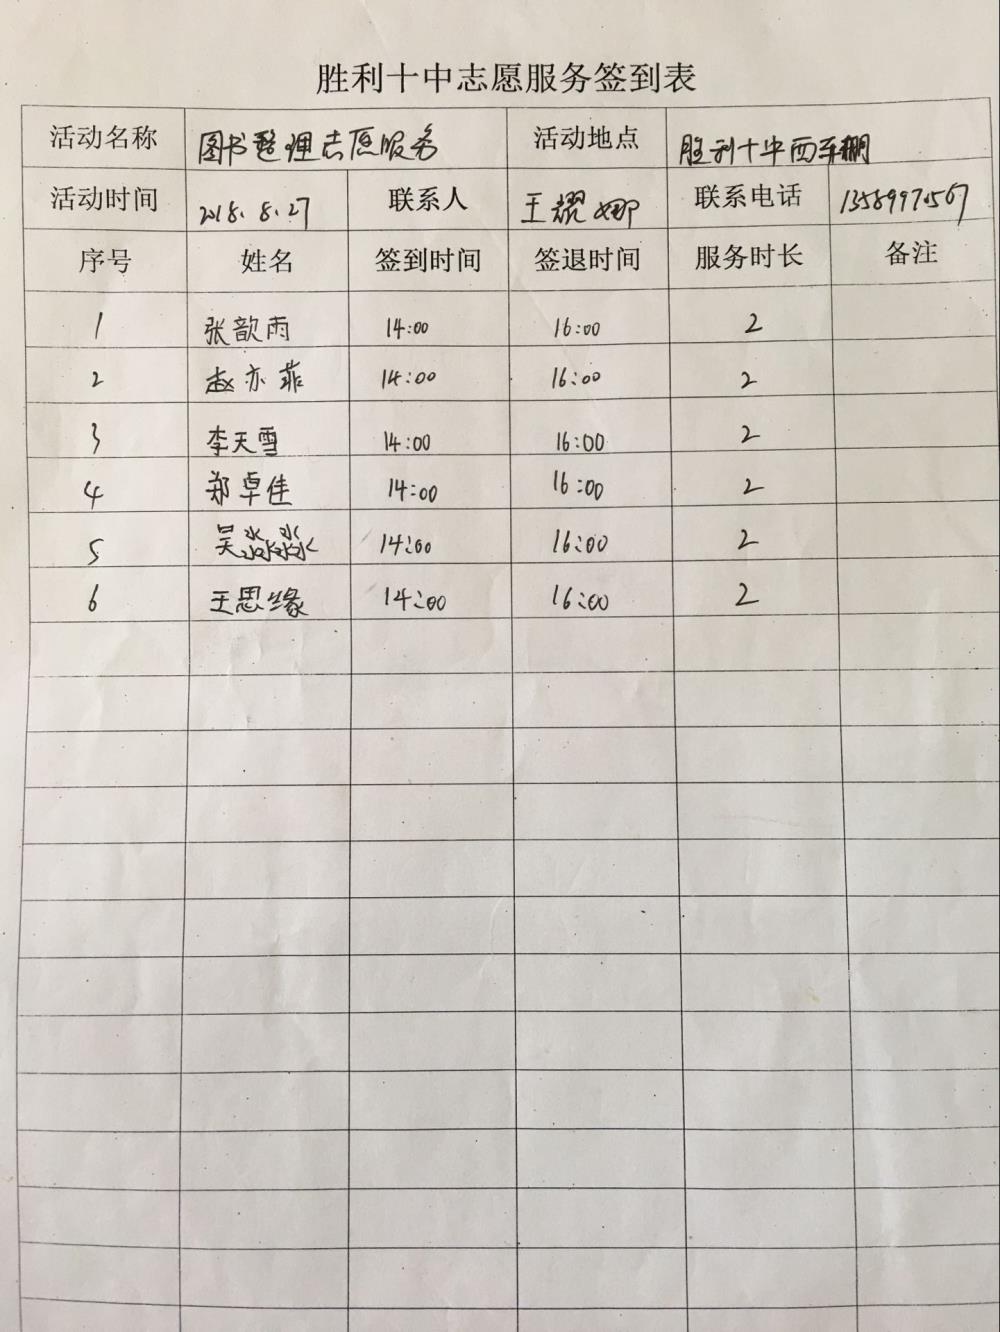 胜利十中志愿服务签到表
活动名称 图书整理志愿服务 活动地点 胜利十中西车棚
活动时间 2018.8.27 联系人 王耀娜 联系电话
序号 姓名 签到时间 签退时间 服务时长 备注
1 张歆雨 14:00 16:00 2
2 赵亦菲 14:00 16:00 2
3 李天雪 14:00 16:00 2
4 郑卓佳 14:00 16:00 2
5 吴淼淼 14:00 16:00 2
6 王思缘 14:00 16:00 2